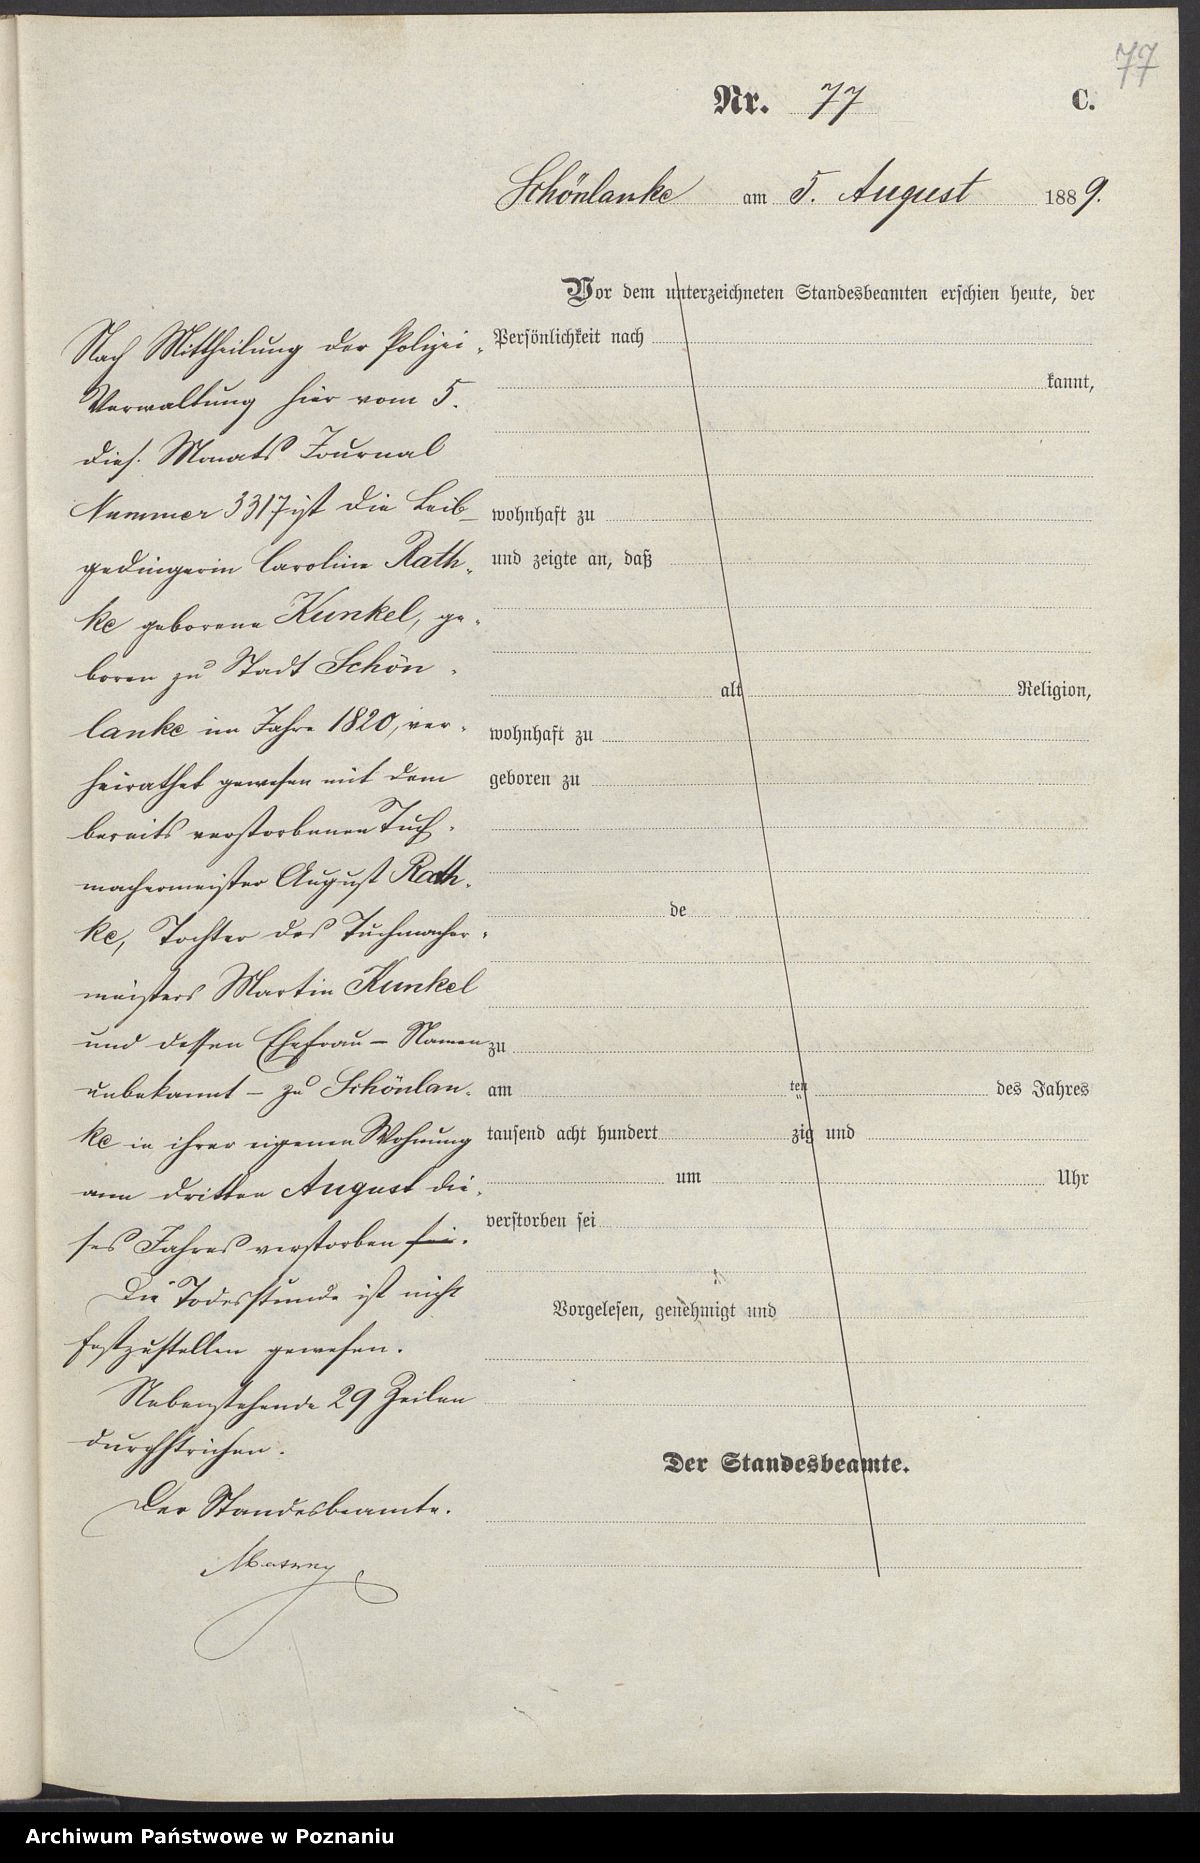 77
Nr. 77 C.
Schönlanke am 5. August 1889.
Nach Mittheilung der Polizei-
Verwaltung hier vom 5.
dies. Monats Journal
Nummer 3317 ist die Leib-
gedingerin Caroline Rath-
ke geborene Kunkel, ge-
boren zu Stadt Schön-
lanke im Jahre 1820, ver-
heirathet gewesen mit dem
bereits verstorbenen Tuch-
machermeister August Rath-
ke, Tochter des Tuchmacher-
meisters Martin Kunkel
und dessen Ehefrau – Namen
unbekannt – zu Schönlan-
ke in ihrer eigenen Wohnung
am dritten August die-
ses Jahres verstorben sei.
Die Todesstunde ist nicht
festzustellen gewesen.
Nebenstehende 29 Zeilen
durchstrichen.
Der Standesbeamte.
Vor dem unterzeichneten Standesbeamten erschien heute, der
Persönlichkeit nach
kannt,
wohnhaft zu
und zeigte an, daß
alt Religion,
wohnhaft zu
geboren zu
de
zu
am ten des Jahres
tausend acht hundert zig und
um Uhr
verstorben sei
Vorgelesen, genehmigt und
Der Standesbeamte.
Archiwum Państwowe w Poznaniu